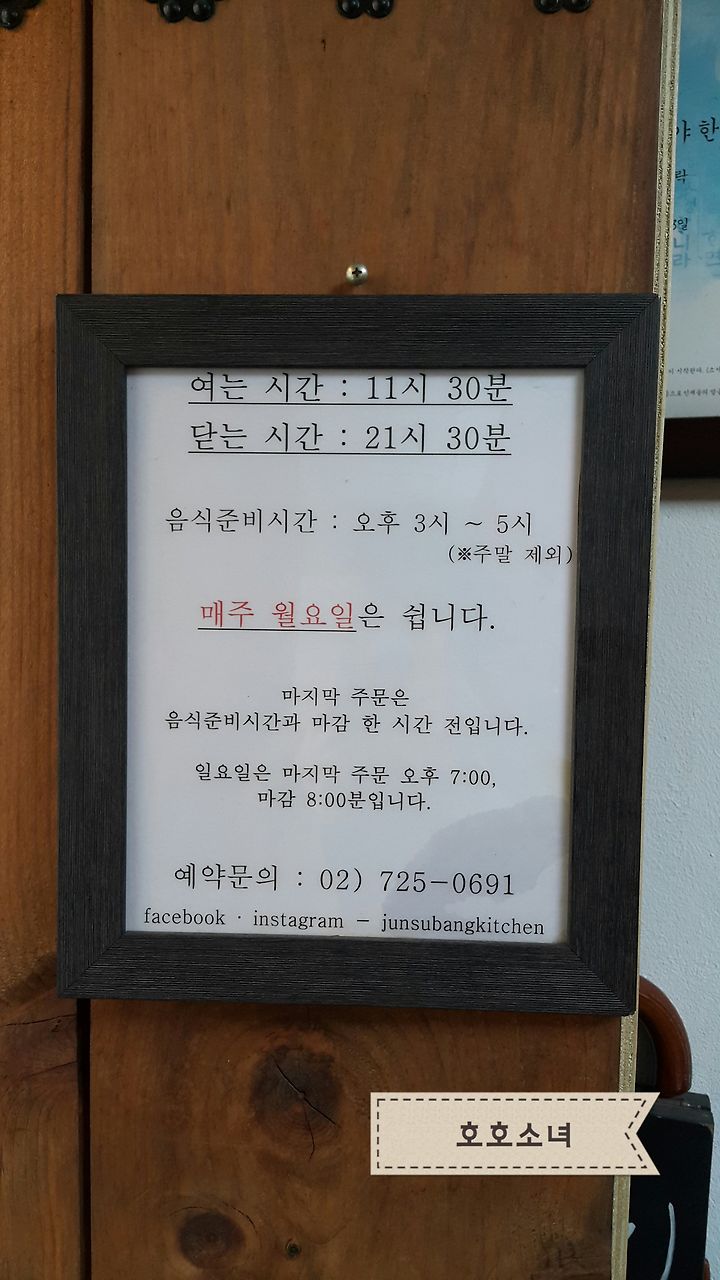 여는 시간 : 11시 30분
닫는 시간 : 21시 30분
음식준비시간 : 오후 3시 ~ 5시
(※주말 제외)
매주 월요일은 쉽니다.
마지막 주문은
음식준비시간과 마감 한 시간 전입니다.
일요일은 마지막 주문 오후 7:00,
마감 8:00분입니다.
예약문의 : 02) 725-0691
facebook · instagram - junsubangkitchen
야 한
락
3일
호호소녀